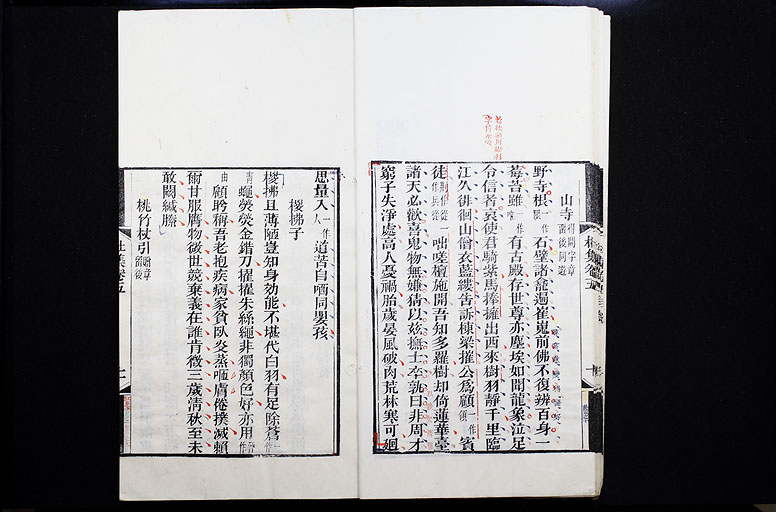 山寺得開字章留後同遊
野寺根一作石壁諸龕遍崔嵬前佛不復辨百身一
莓苔雖一作唯有古殿存世尊亦塵埃如聞龍象泣足
令信者哀使君騎紫馬捧擁出西來樹羽靜千里臨
江久徘徊山僧衣藍縷告訴棟梁摧公為顧一作領賓
徒咄嗟檀施開吾知多羅樹却倚蓮華臺
諸天必歡喜鬼物無嫌猜以茲撫士卒孰曰非周才
窮子失淨處高人憂禍胎歲晏風破肉荒林寒可迴
思量入一作人道苦自哂同嬰孩
椶拂子
椶拂且薄陋豈知身効能不堪代白羽有足除蒼一作
青蠅熒熒金錯刀擢擢朱絲繩非獨顏色好亦用一作
由顧盼稱吾老抱疾病家貧臥炎蒸咂膚倦撲滅賴
爾甘服膺物微世競棄義在誰肯徵三歲清秋至未
敢闕緘縢
桃竹杖引贈章留後
杜集卷五